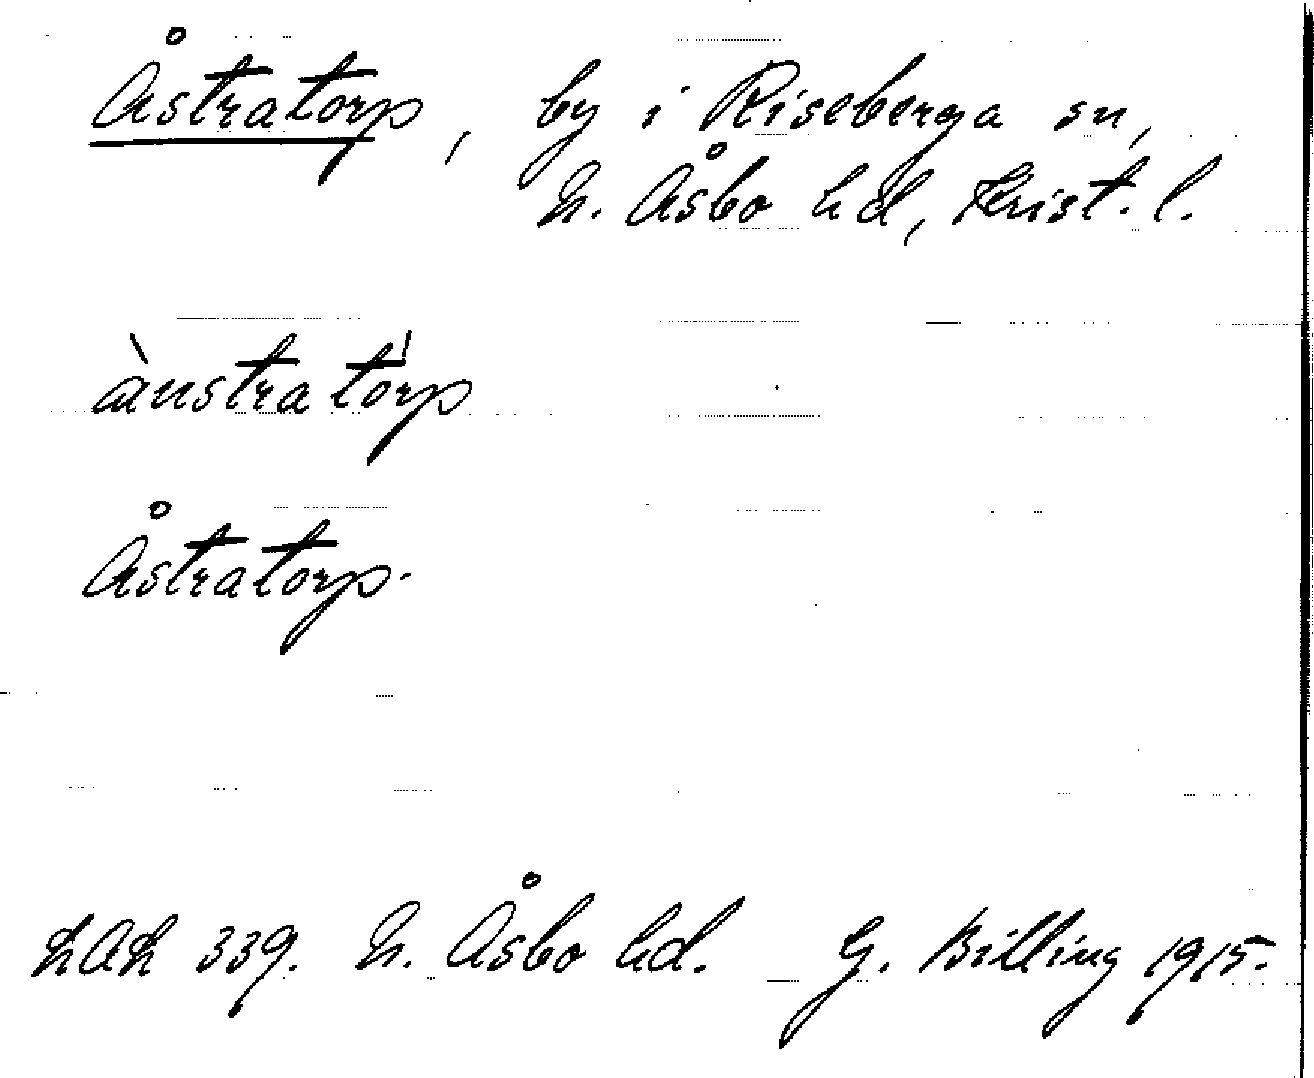 Åstratorp, by i Riseberga sn,
N. Åsbo hd, Krist. l.
ànstratórp
Åstratorp.
LAL 339. N. Åsbo hd. G. Billing 1915.